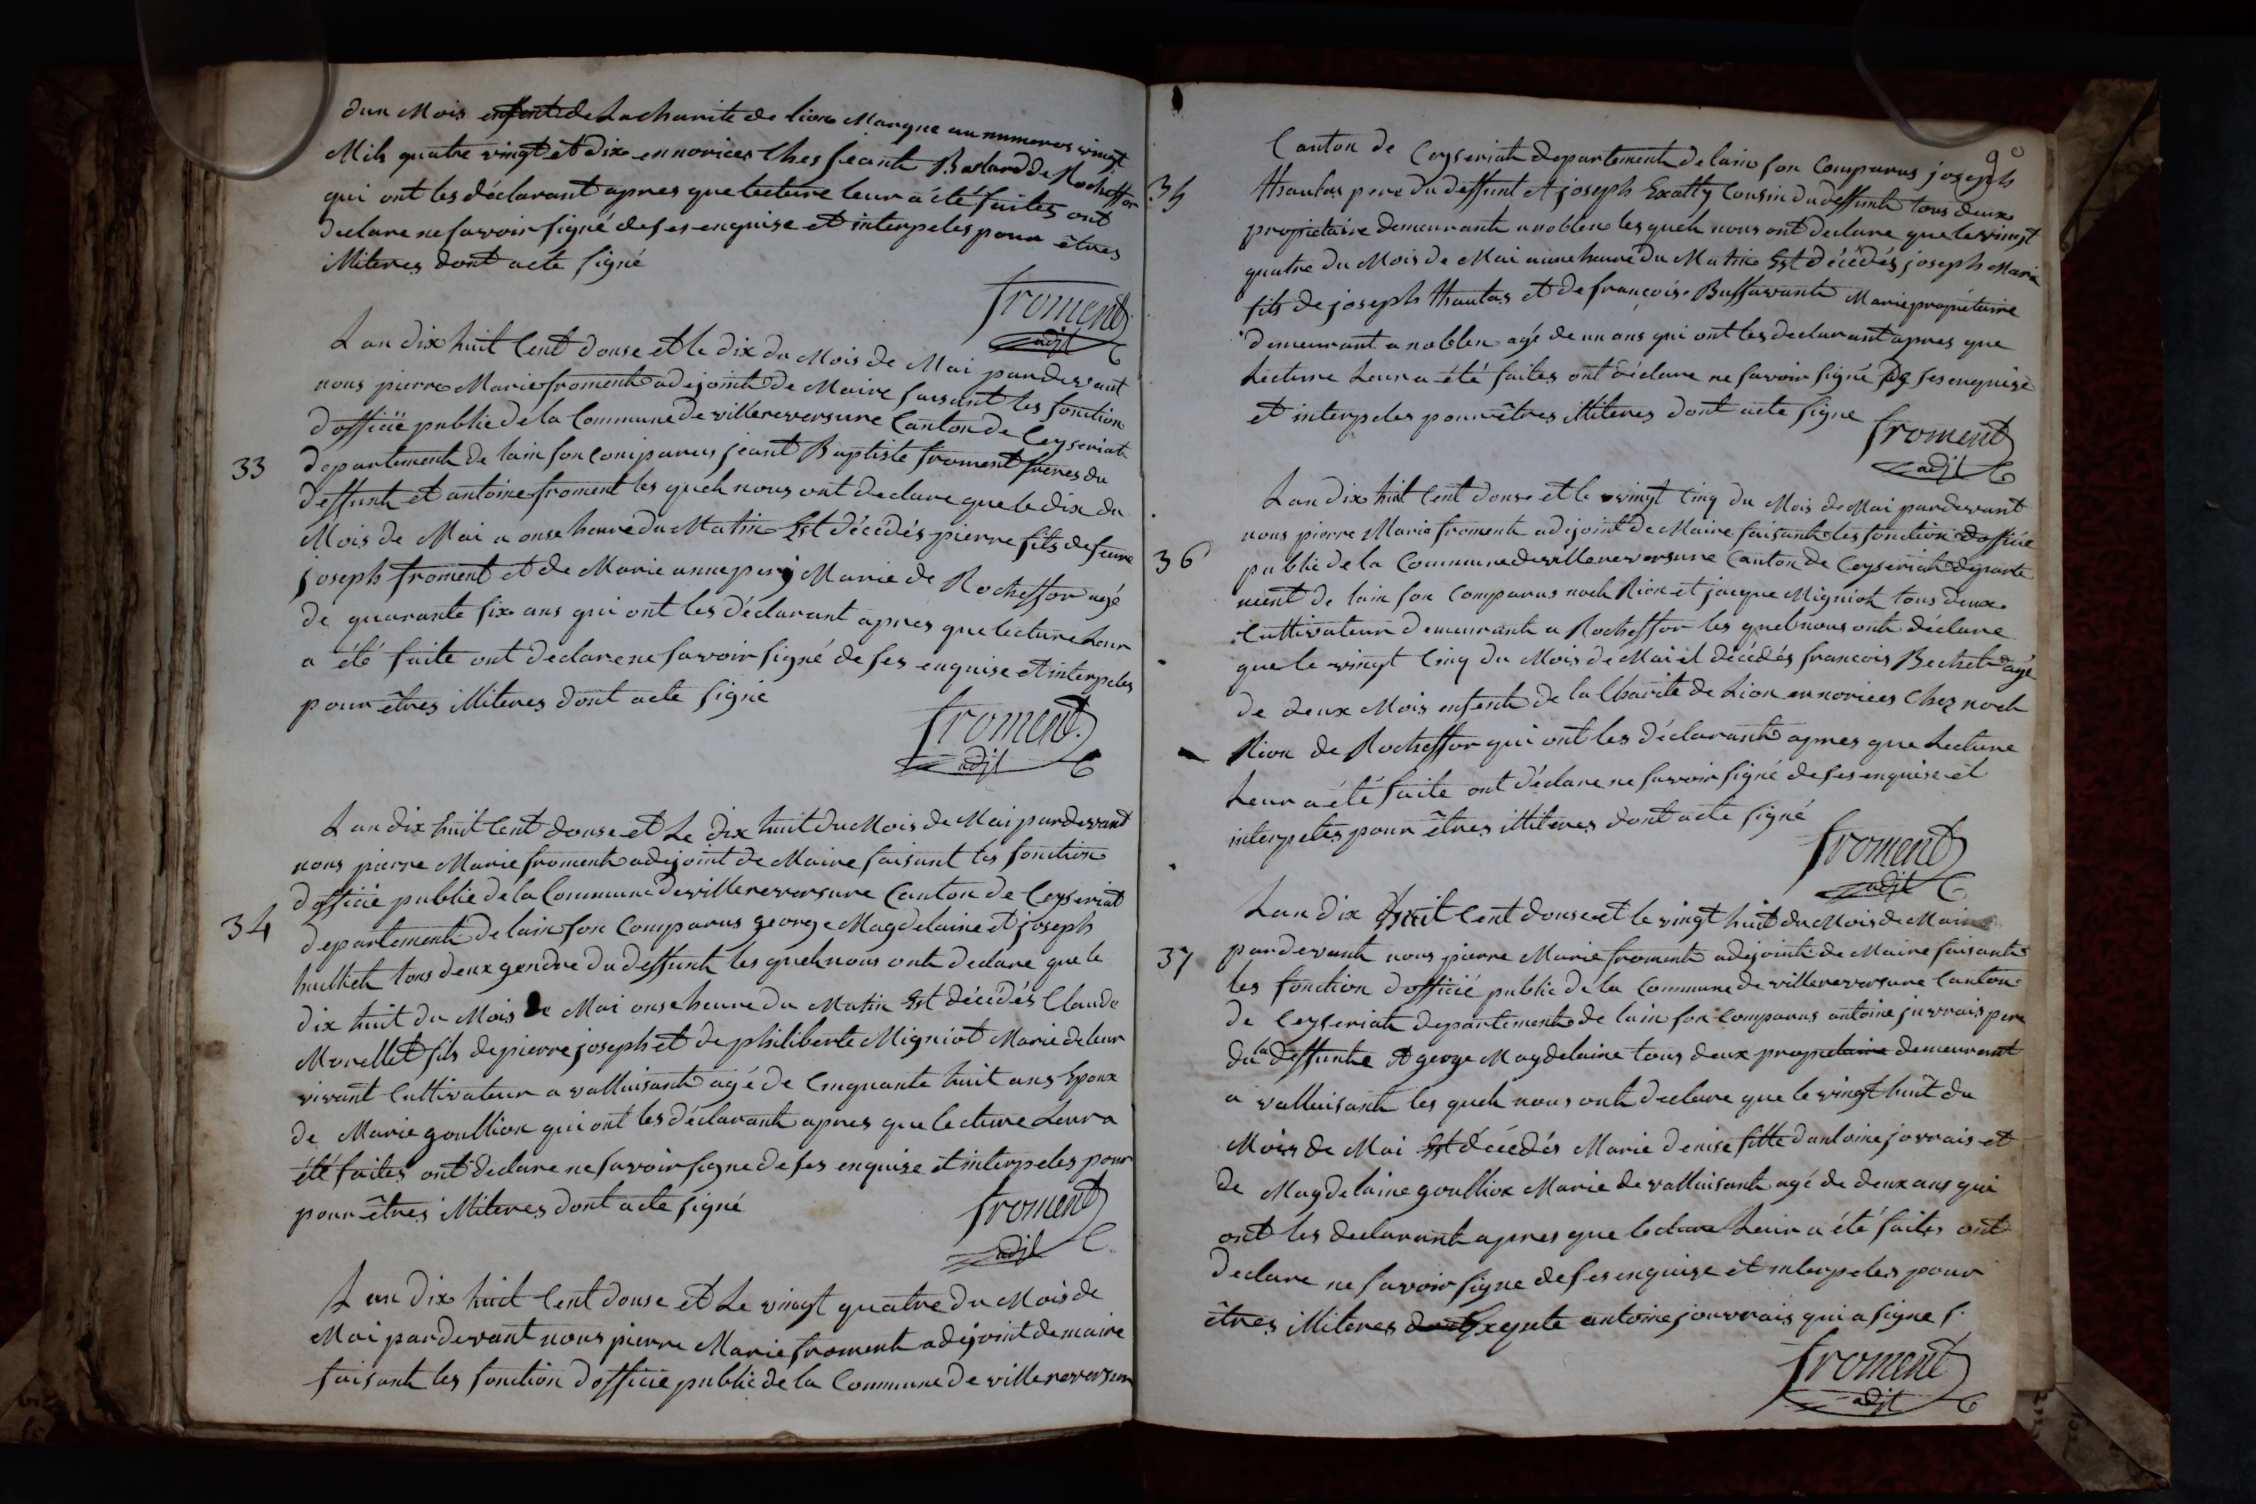 dun Mois enfent de Lacharité de lion Marque au numeros vingt
Mils quatre vingt et dix en norices Ches Bastard de Rocheffor
qui ont les déclarant apres que lecture leur a été faites ont
Declare ne savoir signé de ses enquise et interpeles pour êtres
illiteres dont acte signé
froment
adjt
Lan dix huit Cent douse et le dix du Mois de Mai pardevant
nous pierre Marie froment adejoint de Maire faisant les fonction
dofficié public de la Commune de villereversure Canton de Ceyseriat
33
departement de lain son comparus jeant Baptiste froment freres du
deffunt et antoine froment les quels nous ont declare que le dix du
Mois de Mai a onse heure du Matin Est décédés pierre fils de feure
joseph froment et de Marie anne Marie de Rocheffor agé
de quarante six ans qui ont les déclarant apres que lecture leur
a été faite ont declare ne savoir signé de ses enquise et interpeles
pour êtres illiteres dont acte signé
froment
adjt
Lan dix huit Cent douse et Le dix huit du Mois de Mai pardevant
nous pierre Marie froment adejoint de Maire faisant les fonction
dofficié public de la Commune de villereversure Canton de Ceyseriat
34
departement de lain son Comparus george Magdelaine et joseph
tous deux gendre du deffunt les quels nous ont declare que le
dix huit du Mois de Mai onse heure du Matin Est décédés Claude
Morellet fils de pierre joseph et de philiberte Migniot Marie de leur
vivant Cultivateur a valluisant agé de Cinquante huit ans Epoux
de Marie goullion qui ont les déclarant apres que lecture Leur a
été faites ont declare ne savoir signe de ses enquise et interpeles pour
pour êtres illiteres dont acte signé
froment
adjt
Lan dix huit Cent douse et Le vingt quatre du Mois de
Mai pardevant nous pierre Marie froment adejoint de maire
faisant les fonction dofficié public de la Commune de villereversure
90
Canton de Ceyseriat departement de lain son Comparus joseph
35
pere du deffunt et joseph Cousin du deffunt tous deux
propriétaire demeurant a noblen les quels nous ont declare que le vingt
quatre du Mois de Mai a une heure du Matin Est décédés joseph Marie
fils de joseph et de françoise Buffavant Marie propriétaire
demeurant a noblen agé de un ans qui ont les declarant apres que
Lecture Leur a été faites ont déclare ne savoir signé de ses enquise
et interpeles pour êtres illiteres dont acte signe
froment
adjt
Lan dix huit Cent douse et le vingt Cinq du Mois de Mai pardevant
nous pierre Marie froment adejoint de Maire faisant les fonction dofficié
36
public de la Commune de villereversure Canton de Ceyseriat departe
ment de lain son Comparus noel Rion et jacque Migniot tous deux
Cultivateur demeurant a Rocheffor les quels nous ont déclare
que le vingt Cinq du Mois de Mai et décédés francois Bechet agé
de deux Mois enfent de la Charité de Lion en norices Chez noel
Rion de Rocheffor qui ont les déclarant apres que Lecture
Leur a été faite ont déclare ne savoir signé de ses enquise et
interpeles pour êtres illiteres dont acte signé
froment
adjt
Lan dix huit Cent douse et le vingt huit du Mois de Mai
37
pardevant nous pierre Marie froment adejoint de Maire faisant
les fonction dofficié public de la Commune de villereversure Canton
de Ceyseriat departement de lain son Comparus antoine juvrais pere
du la deffunte et george Magdelaine tous deux propietaire demeurant
a valluisant les quels nous ont declare que le vingt huit du
Mois de Mai Est décédés Marie denise fille dantoine jovrais et
de Magdelaine goullion Marie de valluisant agé de deux ans qui
ont les declarant apres que lecture Leur a été faites ont
declare ne savoir signe de ses enquise et interpelés pour
êtres illiteres dont Exepte antoine jouvrais qui a signe f.
froment
adjt